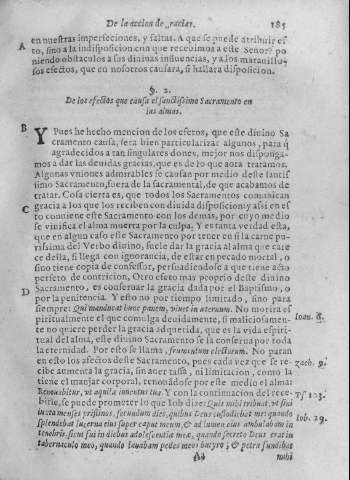 De la accion de gracias. 185
en nuestras imperfeciones, y faltas. A que se puede atribuir es
A to, sino a la indisposicion con que recevimos a este Señor? po
niendo obstaculos a sus divinas influencias, y a los maravillo
sos efectos, que en nosotros causara, si hallara disposicion.
§. 2.
De los efectos que causa el santissimo Sacramento en
las almas.
B Y Pues he hecho mencion de los efetos, que este divino Sa
cramento causa, sera bien particularizar algunos, para q̃
agradecidos a tan singulares dones, mejor nos disponga-
mos a dar las devidas gracias, que es de lo que aora tratamos.
Algunas vniones admirables se causan por medio deste santis
simo Sacramento, fuera de la sacramental, de que acabamos de
tratar. Cosa cierta es, que todos los Sacramentos comunican
gracia a los que los reciben con divida disposicion; y assi en es
C to conviene este Sacramento con los demas, por cuyo medio
se vivifica el alma muerta por la culpa. Y es tanta verdad esta,
que en algun caso este Sacramento por tener en si la carne pu-
rissima del Verbo divino, suele dar la gracia al alma que care
ce della, si llega con ignorancia, de estar en pecado mortal, o
sino tiene copia de confessor, persuadiendose a que tiene acto
perfecto de contricion. Otro efeto mas proprio deste divino
D Sacramento, es conservar la gracia dada por el Baptismo, o
por la penitencia. Y esto no por tiempo limitado, sino para
siempre: Qui manducat hunc panem, vivet in aeternum. No morira es
piritualmente el que comulga devidamente, si maliciosamen-
te no quiere perder la gracia adquerida, que es la vida espiri-
tual del alma, este divino Sacramento se la conserva por toda
la eternidad. Por esto se llama, frumentum electorum. No paran
en esto los afectos deste Sacramento, pues cada vez que se re-
cibe aumenta la gracia, sin aver tassa, ni limitacion, como la
tiene el manjar corporal, renovãdose por este medio el alma:
Renovabitur, vt aquila iuventus tua. Y con la continuacion del rece-
birse, se puede prometer lo que Iob dize: Quis mihi tribuat, vt sim
iuxta menses pristinos, secundum dies, quibus Deus custodiebat me: quando
splendebat lucerna eius super caput meum, & ad lumen eius ambulabam in
tenebris, sicut fui in diebus adolescentiae meae, quando secreto Deus erat in
tabernaculo meo, quando lavabam pedes meos butyro, & petra fundebat
Aa mihi
Ioan. 8.
zach. 9.
Ps 103.
Iob. 29.